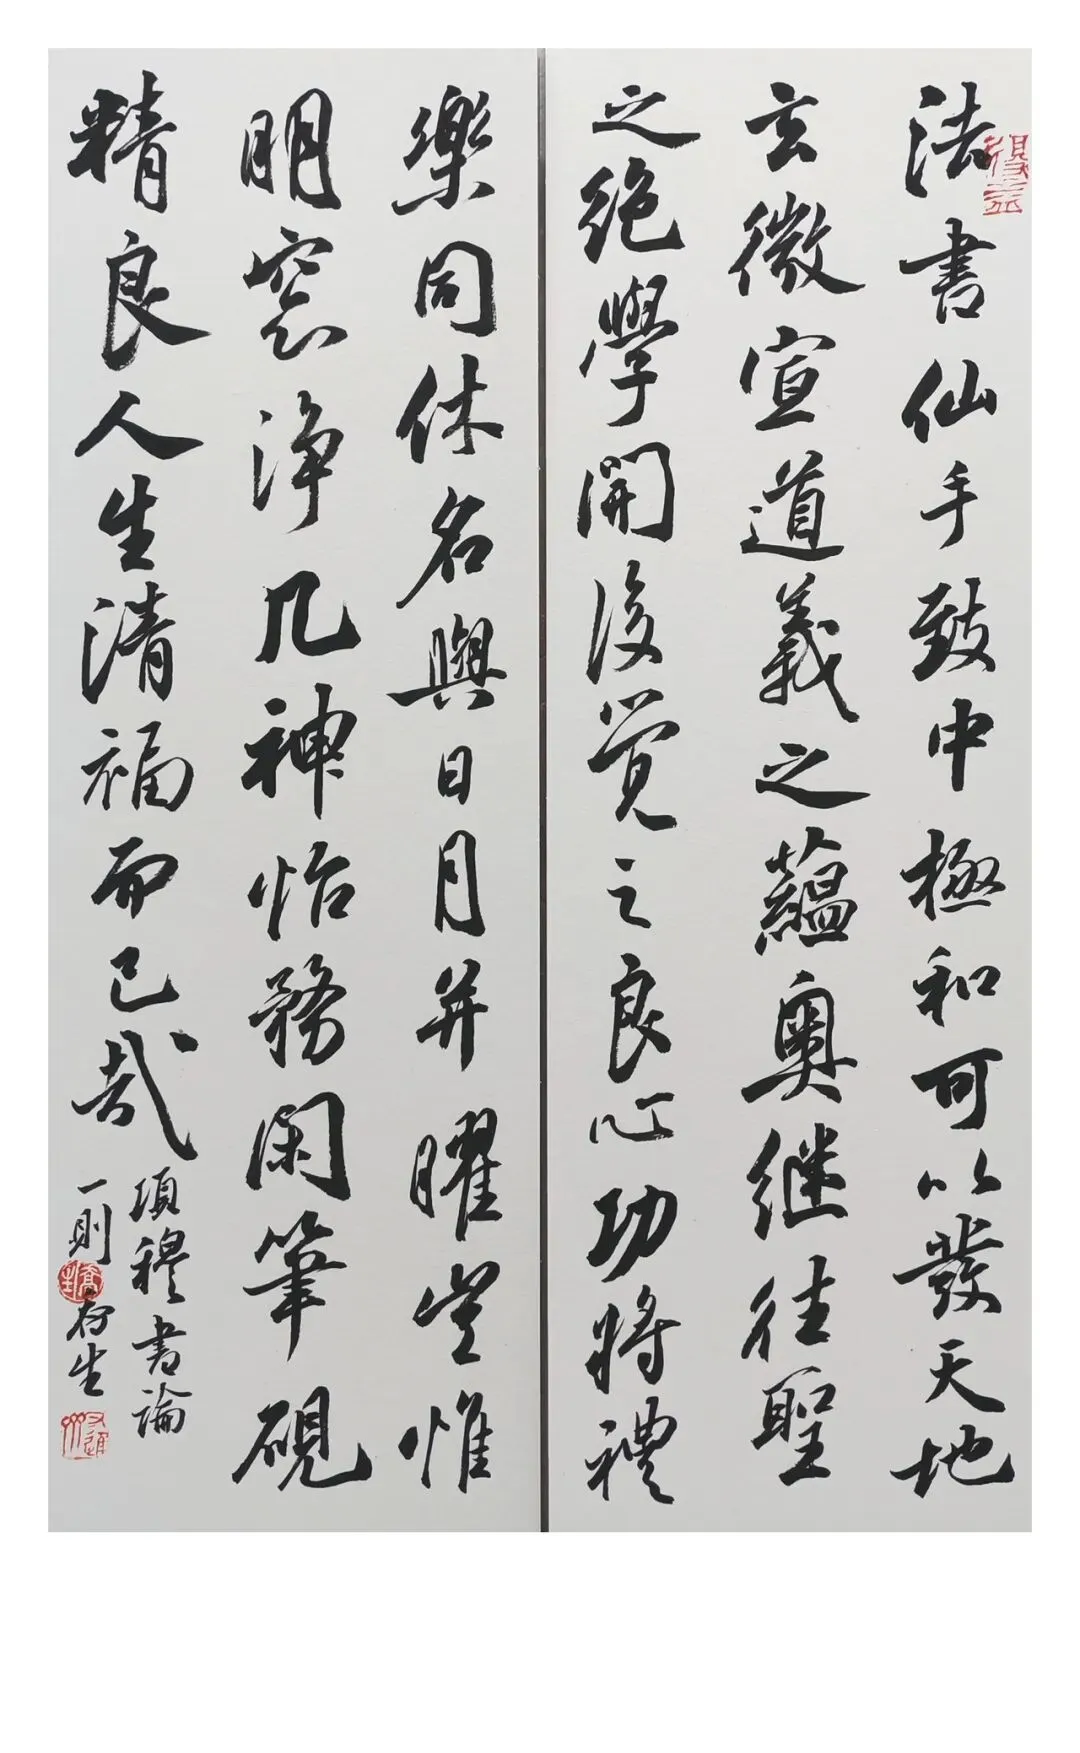 法書仙手致中極和可以發天地
玄微宣道義之蘊奧继往聖
之绝學開後觉之良心功将禮
樂同休名與日月并曜豈惟
明窓净几神怡務闲筆硯
精良人生清福而已哉
項穆書論
一則
存生